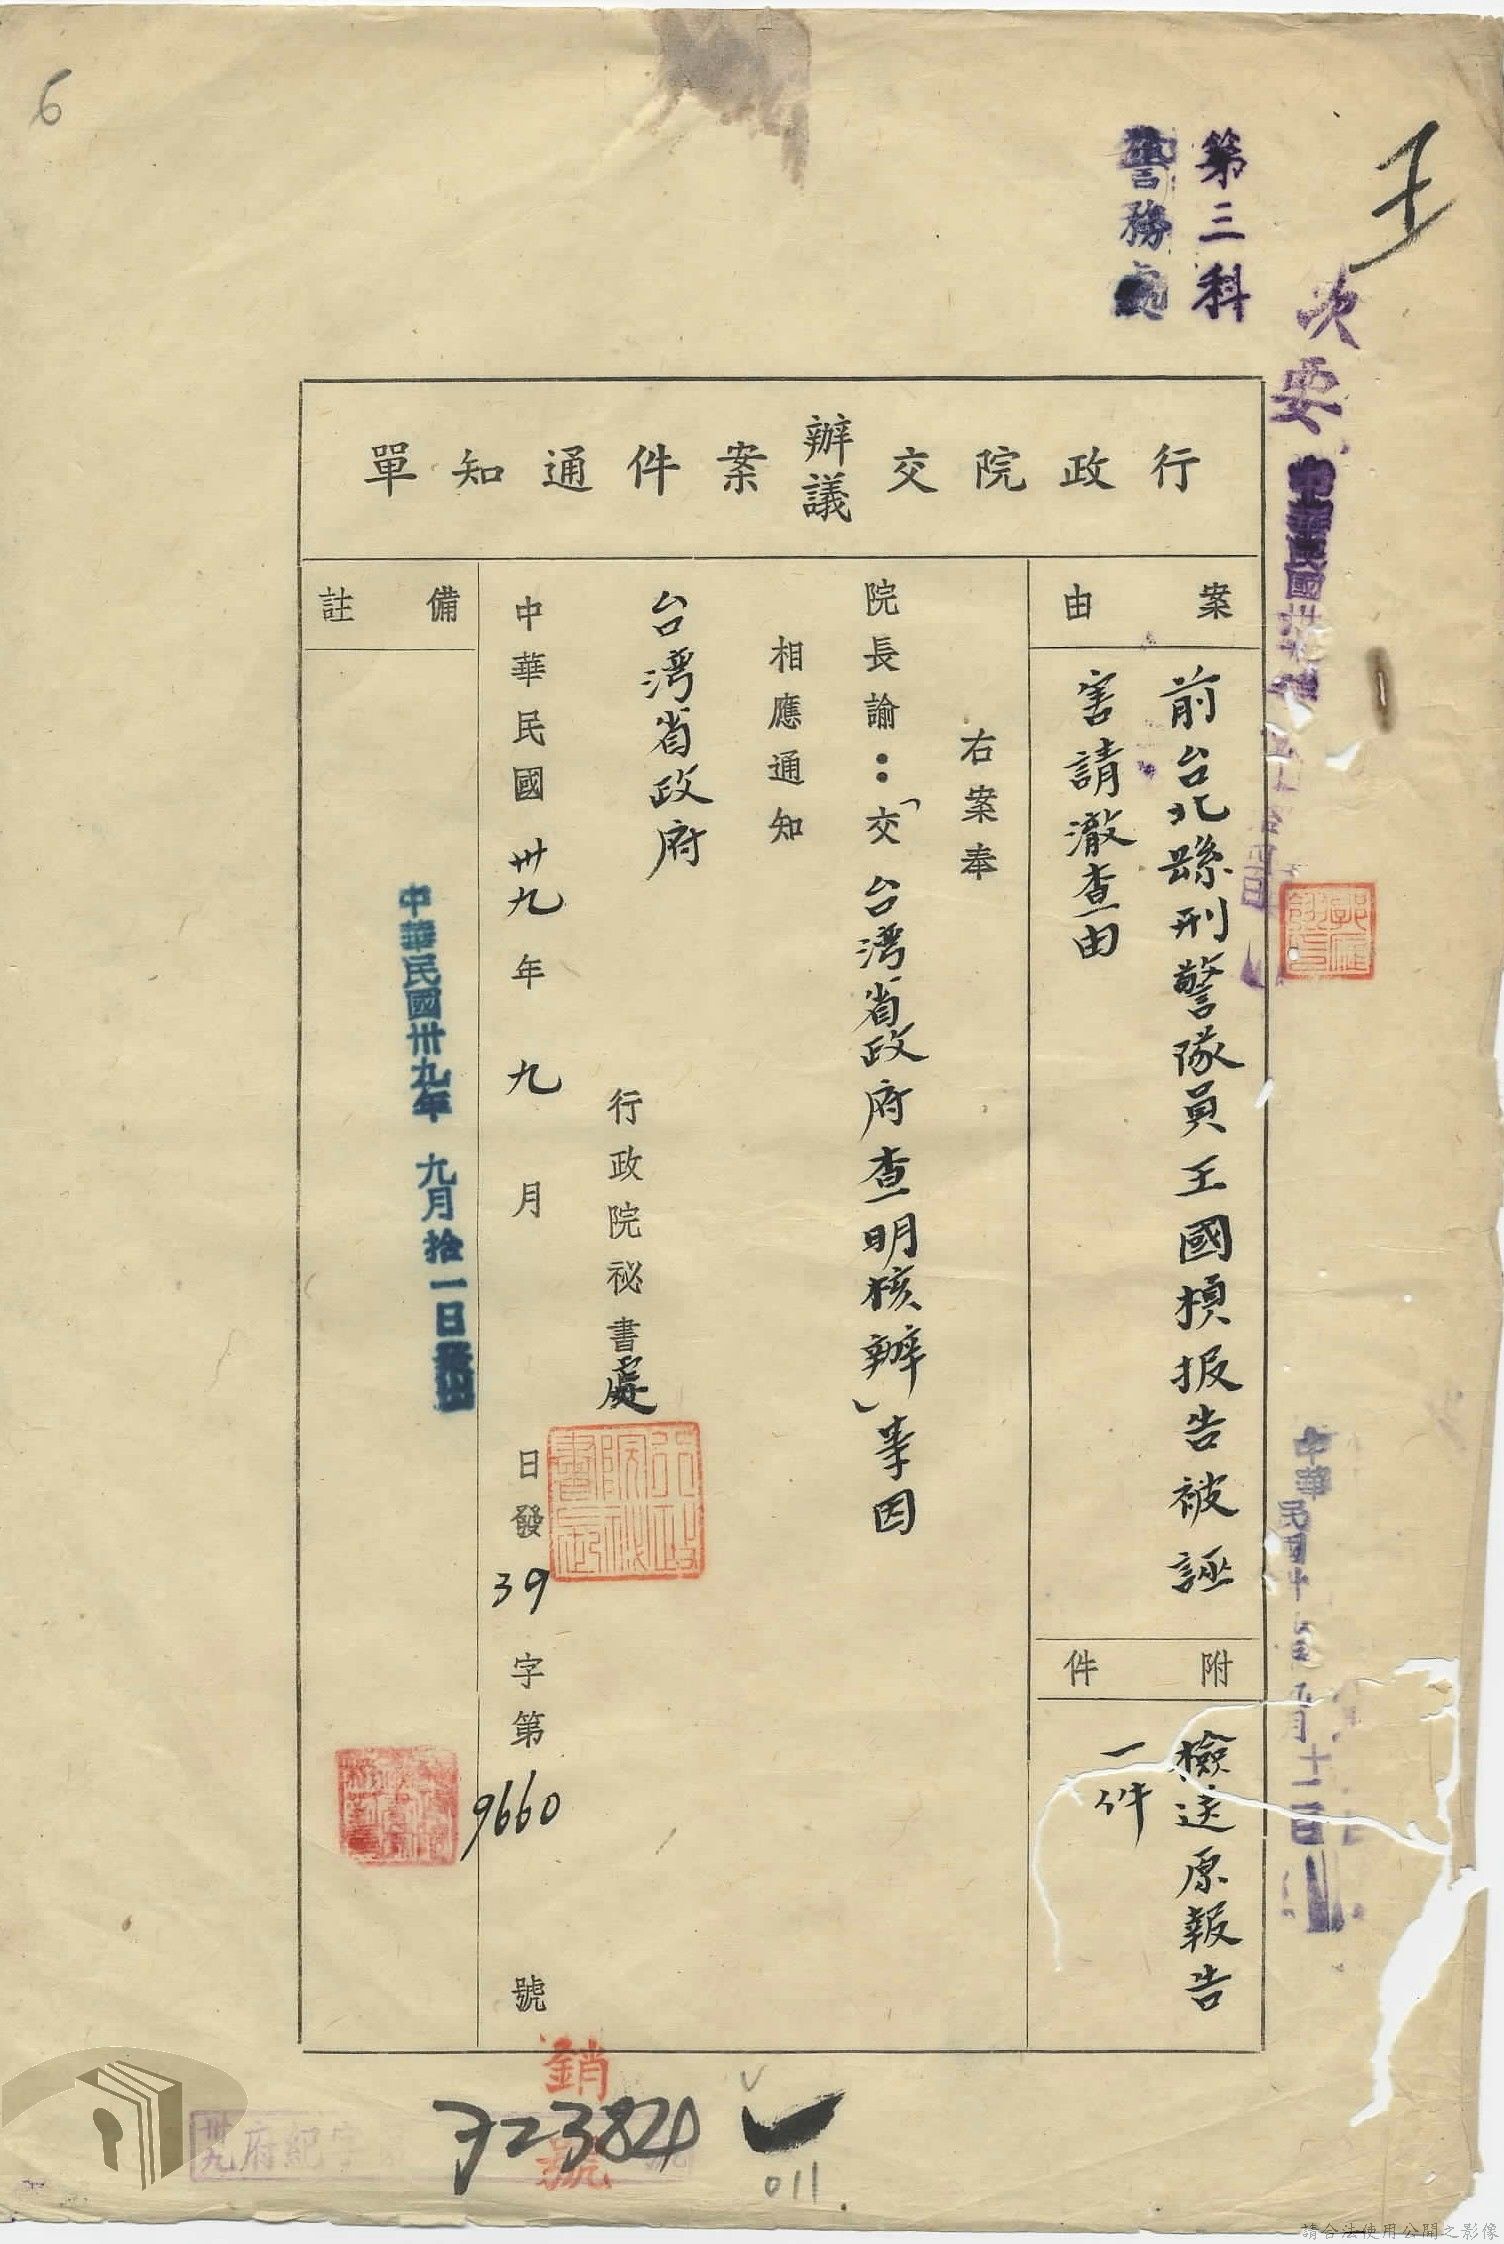 6
王
第三科
警務處
次要
行政院交辦議案件通知單
案由
前台北縣刑警隊員王國楨报告被誣
害請澈查由
附件
檢送原報告
一件
右案奉
院長諭：「交台灣省政府查明核辦」等因
相應通知
台灣省政府
行政院祕書處
中華民國卅九年九月 日發39字第9660號
備註
中華民國卅九年九月拾一日
銷號
卅九府紀字
72384
011
請合法使用公開之影像